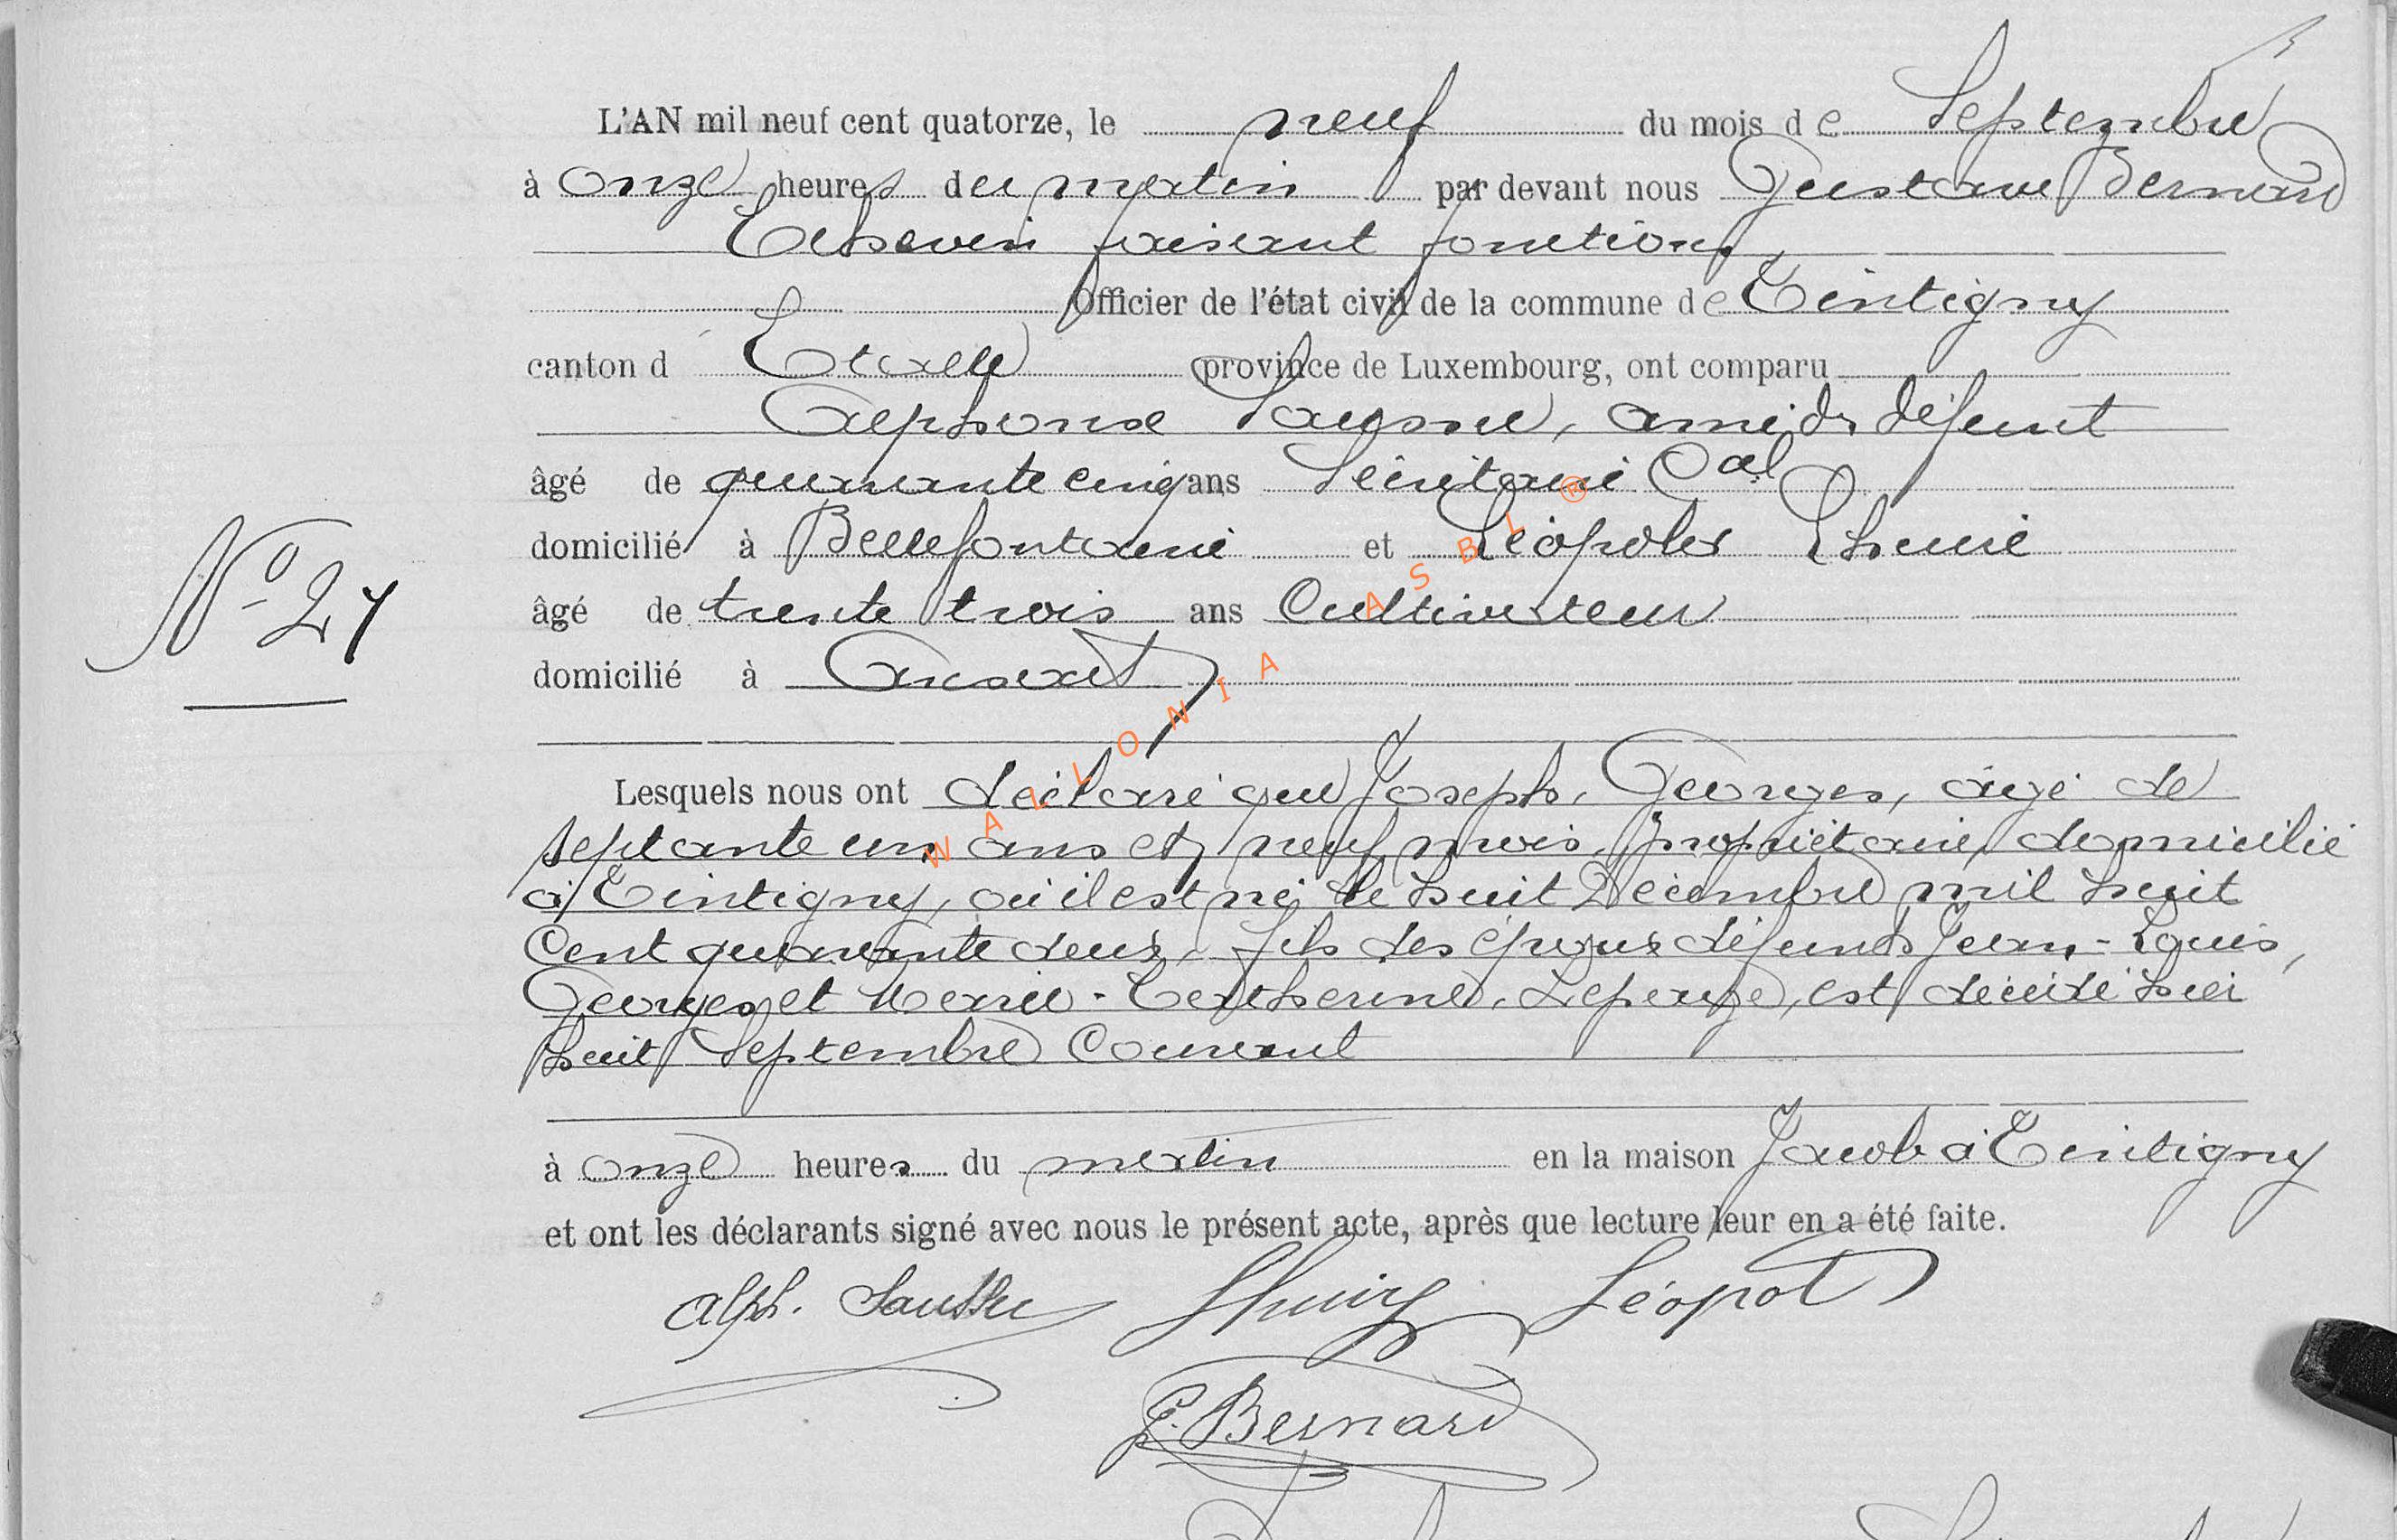 L'AN mil neuf cent quatorze, le neuf du mois de Septembre
à onze heures du matin par devant nous Gustave Bernard
Echevin faisant fonctions
Officier de l'état civil de la commune de Tintigny
canton d Etalle province de Luxembourg, ont comparu
Alphonse Saussu, ami du défunt
âgé de quarante cinq ans Secrétaire Cal
domicilié à Bellefontaine et Léopold
âgé de trente trois ans Cultivateur
N° 27
domicilié à Ansart
Lesquels nous ont déclaré que Joseph, Georges, âgé de
septante un ans et neuf mois, propriétaire, domicilié
à Tintigny, où il est né le huit Décembre mil huit
Cent quarante deux, fils des époux défunts Jean-Louis,
Georges et Marie-Catherine, est décédé hier
huit Septembre Courant
à onze heures du matin en la maison Jacob à Tintigny
et ont les déclarants signé avec nous le présent acte, après que lecture leur en a été faite.
Alph. Saussu Léopol
G. Bernard
WALLONIA ASBL ®